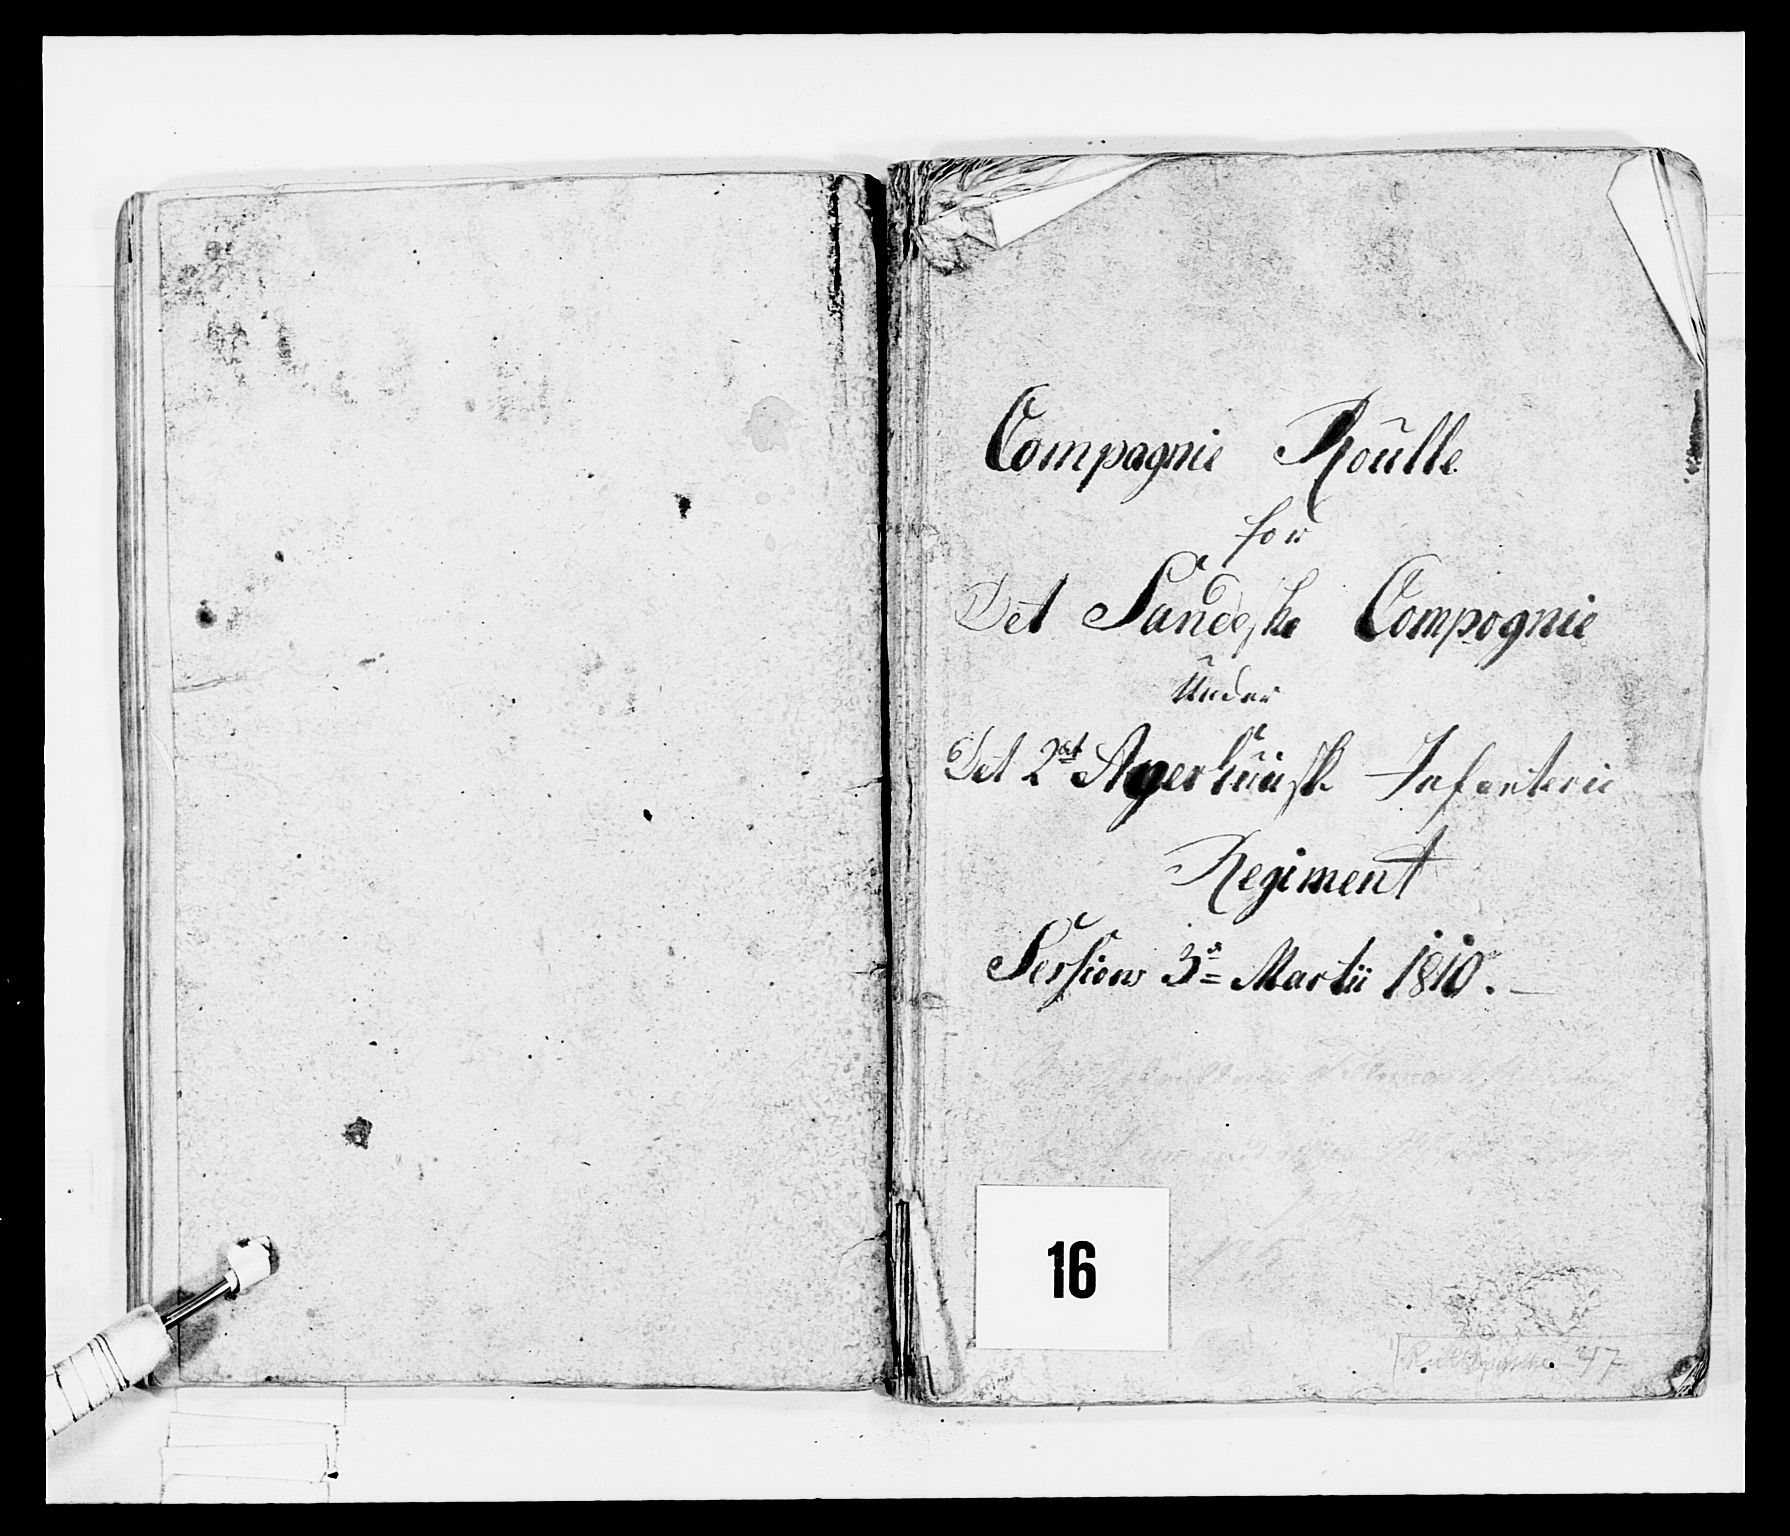 Compagnie Roulle
for
Det Sandeske Compognie
Under
Det 2det Agerhuusk Infanterie
Regiment
Session 3de Martii 1810. —
16
47